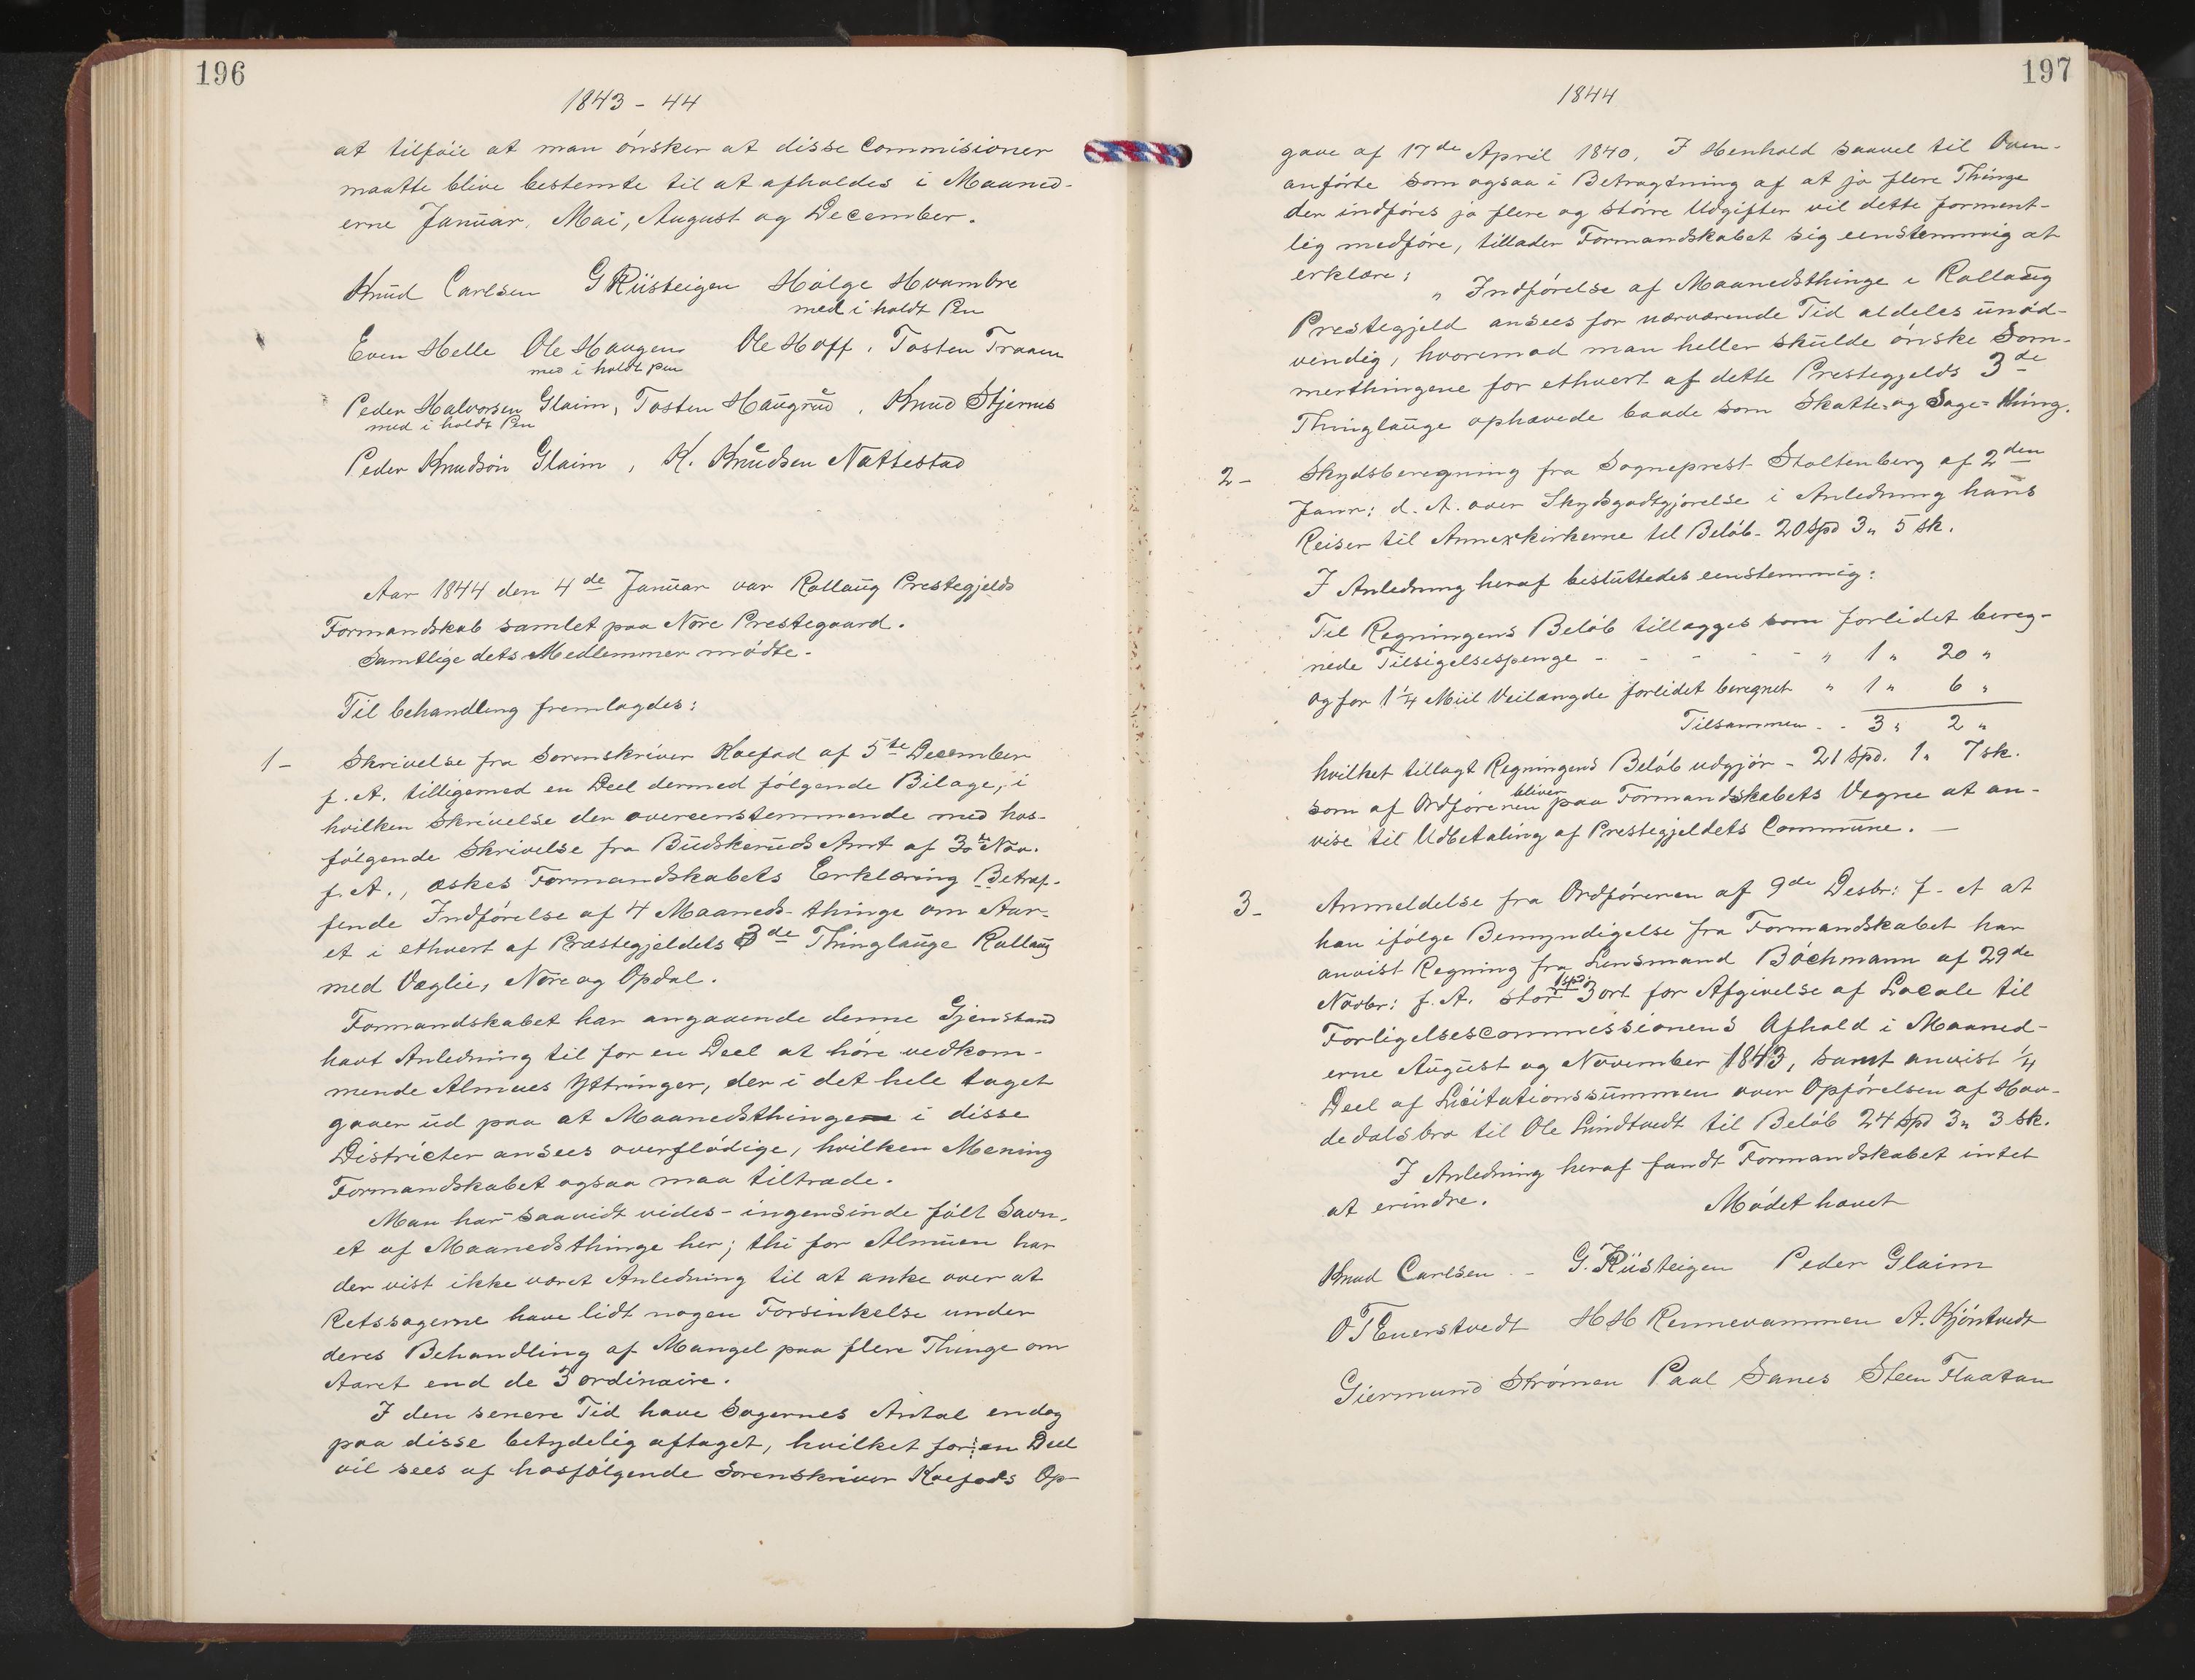 196
1843 - 44
at tilføie at man ønsker at disse Commisioner
maatte blive bestemte til at afholdes i Maaned-
erne Januar, Mai, August og December.
Knud Carlsen G Rüsteigen Holge Hvambre
med i holdt Pen
Even Helle Ole Haugen Ole Hoff, Tosten Traaen
med i holdt pen
Peder Halvorsen Glaim, Tosten Haugrud, Knud Stjernes
med i holdt Pen
Peder Knudsön Glaim, K. Knudsen Nattestad
Aar 1844 den 4de Januar var Rollaug Prestegjelds
Formandskab samlet paa Nore Prestegaard.
Samtlige dets Medlemmer mødte.
Til behandling fremlagdes:
1- Skrivelse fra Sorenskriver Koefod af 5te December
f. A. tilligemed en Deel dermed følgende Bilage, i
hvilken Skrivelse der overeenstemmende med hos-
følgende Skrivelse fra Buskeruds Amt af 30te Nov.
f. A., æskes Formandskabets Erklæring Betræf-
fende Indførelse af 4 Maaneds-thinge om Aar-
et i ethvert af Præstegjeldets 3de Thinglauge Rollaug
med Væglie, Nore og Opdal.
Formandskabet har angaaende denne Gjenstand
havt Anledning til for en Deel at høre vedkom-
mende Almues Yttringer, der i det hele taget
gaaer ud paa at Maanedsthinge i disse
Districter ansees overflødige, hvilken Mening
Formandskabet ogsaa maa tiltræde.
Man har saavidt vides - ingensinde følt Savn-
et af Maanedsthinge her; thi for Almuen har
der vist ikke været Anledning til at anke over at
Retssagerne have lidt nogen Forsinkelse under
deres Behandling af Mangel paa flere Thinge om
Aaret end de 3 ordinaire.
I den senere Tid have Sagernes Antal endog
paa disse betydelig aftaget, hvilket for en Deel
vil sees af hosfølgende Sorenskriver Koefods Op-
197
1844
gave af 17de April 1840. I Henhold saavel til Oven-
anførte som ogsaa i Betragtning af at jo flere Thinge
der indføres jo flere og større Udgifter vil dette forment-
lig medføre, tillader Formandskabet sig eenstemmig at
erklære:
" Indførelse af Maanedsthinge i Rollaug
Prestegjeld ansees for nærværende Tid aldeles unød-
vendig, hvorimod man heller skulde ønske Som-
merthingene for ethvert af dette Prestegjelds 3de
Thinglauge ophævede baade som Skatte- og Sage= thing.
2- Skydsberegning fra Sogneprest Stoltenberg af 2den
Janr: d. A. over Skydsgodtgjørelse i Anledning hans
Reiser til Annexkirkerne til Beløb - 20 spd 3 " 5 sk.
I Anledning heraf besluttedes eenstemmig:
Til Regningens Beløb tillægges som forlidet bereg-
nede Tilsigelsespenge - - - - - " 1 " 20 "
og for 1 1/4 Miil Veilængde forlidet beregnet " 1 " 6 "
Tilsammen - - 3 " 2 "
hvilket tillagt Regningens Beløb udgjør - 21 spd. 1 " 7 sk.
bliver
som af Ordføreren paa Formandskabets Vegne at an-
vise til Udbetaling af Prestegjeldets Commune. -
3- Anmeldelse fra Ordføreren af 9de Desbr: f. A at
han ifølge Bemyndigelse fra Formandskabet har
anvist Regning fra Lensmand Bóchmann af 29de
1 spd
Novbr: f. A. stor 3 ort for Afgivelse af Locale til
Forligelsescommissionens Afhold i Maaned-
erne August og November 1843, samt anvist 1/4
Deel af Licitationssummen over Opførelsen af Hov-
dedalsbro til Ole Lindtvedt til Beløb 24 spd 3 " 3 sk.
I Anledning heraf fandt Formandskabet intet
at erindre. Mødet hævet
Knud Carlsen - G. Rüsteigen Peder Glaim
O T Enerstvedt H H Rennevammen A. Kjøntvedt
Giermund Strømen Paal Sanes Steen Flaatan